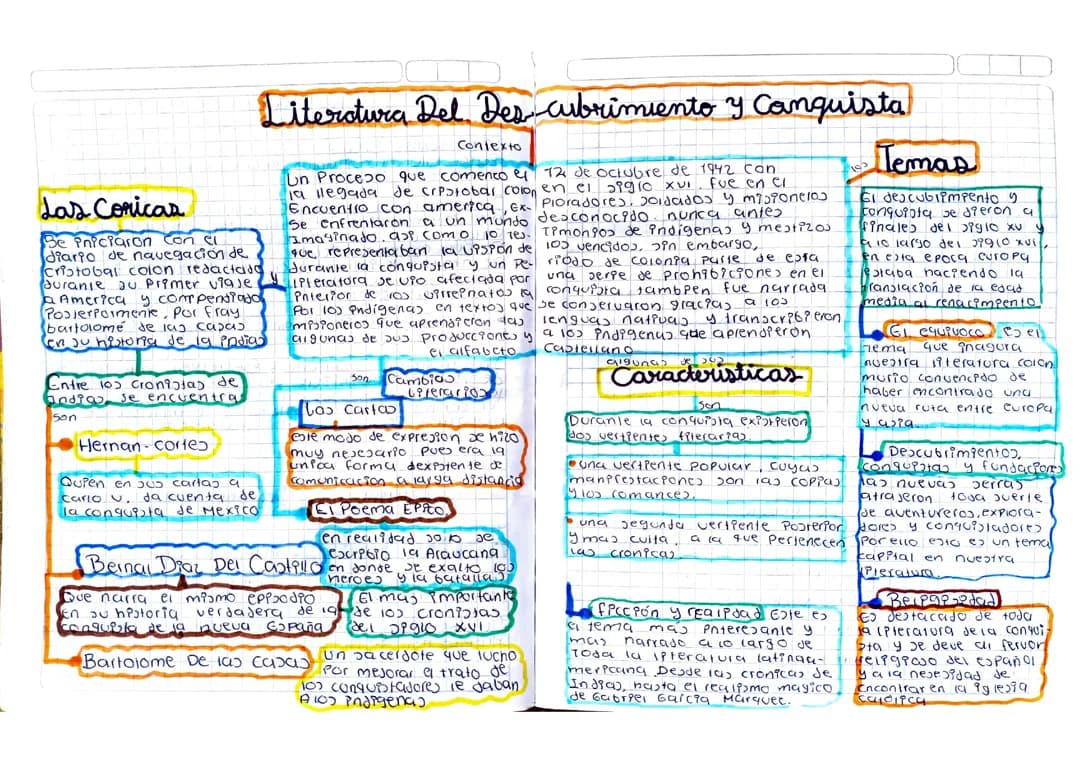 Literatura Del Des-cubrimiento y Conquista
Contexto
Un Proceso que comenco el 12 de octubre de 1942 con
la llegada de cristobal colon en el siglo xvi. fue en el
Encuentro con america, Ex-ploradores, soldados y misioneros
Se enfrentaron a un mundo desconocido. nunca antes
Imaginado. asi como los tes-timonios de indigenas y mestizos
que representaban la vision de los vencidos, sin embargo,
durante la conquista y un pe-riodo de colonia parte de esta
literatura se vio afectada por una serie de prohibiciones en el
interior de los virreinatos la conquista tambien fue narrada
Por los indigenas en textos que se conservaron gracias a los
misioneros que aprendieron las lenguas nativas y transcribieron
algunas de sus producciones y a los indigenas que aprendieron
el alfabeto Castellano
algunas de sus
Las Conicas
Se iniciaron con el
diario de navegación de
Cristobal colon redactado
durante su Primer viaje
a America y compendiado
Posteriormente, Por fray
bartolomé de las casas
en su historia de la indias
Entre los cronistas de
indias, se encuentra
son
Hernan-cortes
Quien en sus cartas a
carlo v. da cuenta de
la conquista de Mexico
Bernal Diaz Del Castillo
Que narra el mismo episodio
en su historia verdadera de la
conquista de la nueva España
El mas importante
de los cronistas
del siglo XVI
Bartolome De las Casas
Un sacerdote que lucho
Por mejorar a trato de
los conquistadores le daban
A los indigenas
son
Cambias
Literarios
Las Cartas
Este modo de expresion se hizo
muy nesesario pues era la
unica forma dexistente de
comunicacion a larga distancia
El Poema Epico
en realidad solo se
escribio la Araucana
en donde se exalto los
heroes y la batallas
Caracteristicas
son
Durante la conquista existieron
dos vertientes literarias.
una vertiente popular, cuyas
manifestaciones son las coplas
y los romances.
una segunda vertiente Posterior
y mas culta, a la que pertenecen
las cronicas
ficción y realidad Este es
el tema mas interesante y
mas narrado a lo largo de
Toda la literatura latinoa-
mericana Desde las cronicas de
Indias, hasta el realismo magico
de Gabriel Garcia Marquez.
los
Temas
El descubrimiento y
conquista se dieron a
finales del siglo xv y
a lo largo del siglo xvi,
en esta epoca europa
estaba haciendo la
translación de la edad
media al renacimiento
El equivoco es el
tema que inagura
nuestra literatura colon
murio convencido de
haber encontrado una
nueva ruta entre Europa
y asia.
Descubrimientos,
conquistas y fundaciones
las nuevas tierras
atrajeron toda suerte
de aventureros, explora-
dores y conquistadores
Por ello este es un tema
capital en nuestra
literatura.
Religiosidad
Es destacado de toda
la literatura de la conqui-
sta y se debe al fervor
religioso del español
y a la nesesidad de
encontrar en la iglesia
catolica